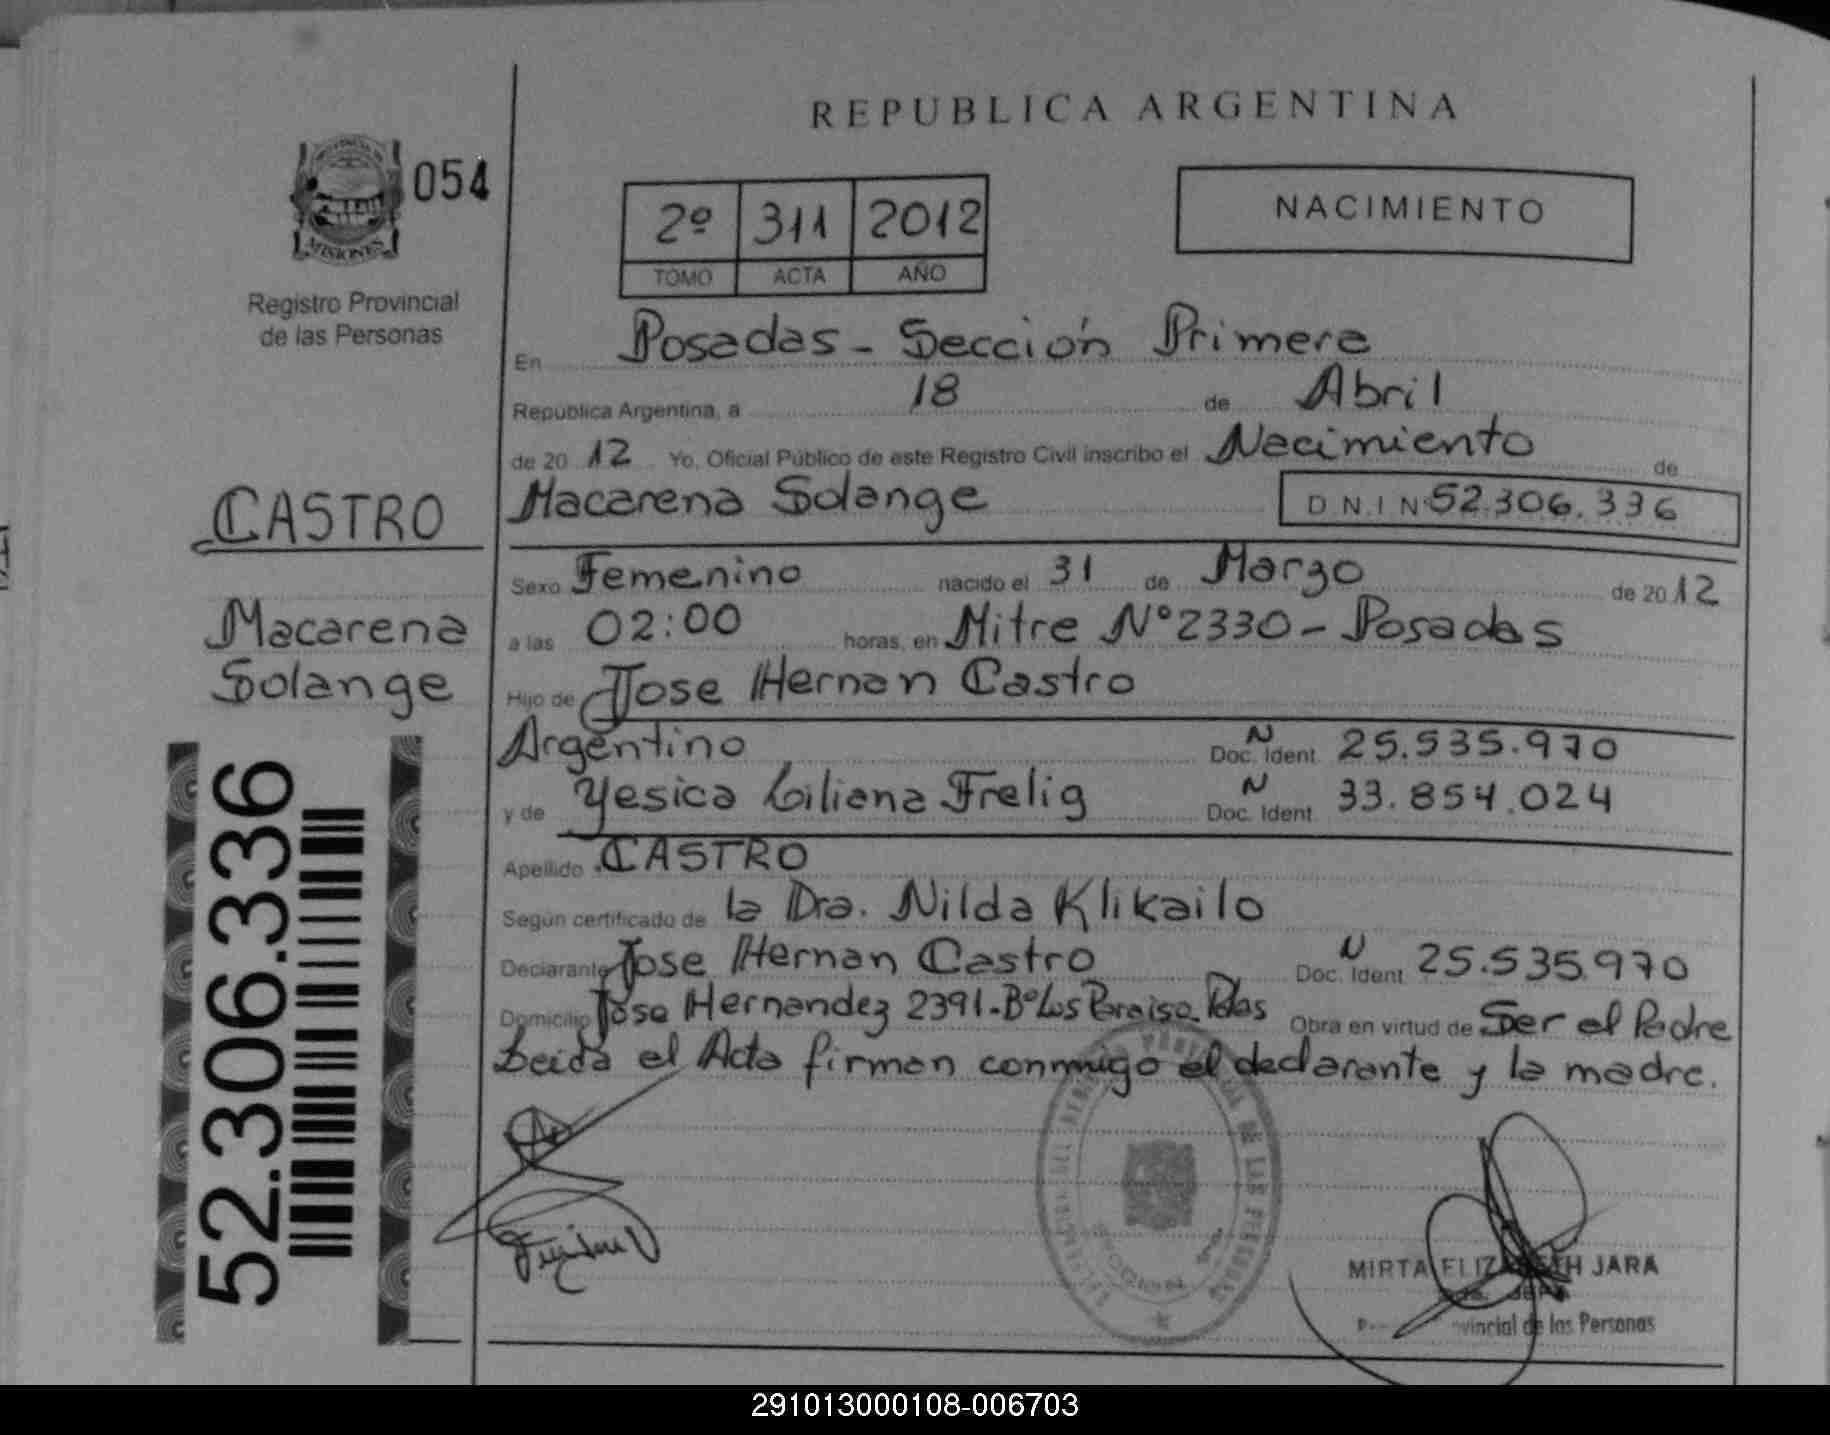 REPUBLICA ARGENTINA
MISIONES
054
Registro Provincial
de las Personas
2º 311 2012
TOMO ACTA AÑO
NACIMIENTO
En Posadas - Sección Primera
República Argentina, a 18 de Abril
de 2012 Yo, Oficial Público de este Registro Civil inscribo el Nacimiento de
Macarena Solange D.N.I Nº 52.306.336
CASTRO
Macarena
Solange
52.306.336
Sexo Femenino nacido el 31 de Marzo de 2012
a las 02:00 horas, en Mitre Nº 2330 - Posadas
Hijo de Jose Hernan Castro
Argentino Doc. Ident. N 25.535.970
y de Yesica Liliana Frelig Doc. Ident. N 33.854.024
Apellido CASTRO
Según certificado de la Dra. Nilda Klikailo
Declarante Jose Hernan Castro Doc. Ident. N 25.535.970
Domicilio Jose Hernandez 2391 - Bº Los Paraiso. Pdas Obra en virtud de Ser el Padre
Leida el Acta firman conmigo el declarante y la madre.
MIRTA ELIZABETH JARA
Provincial de las Personas
291013000108-006703